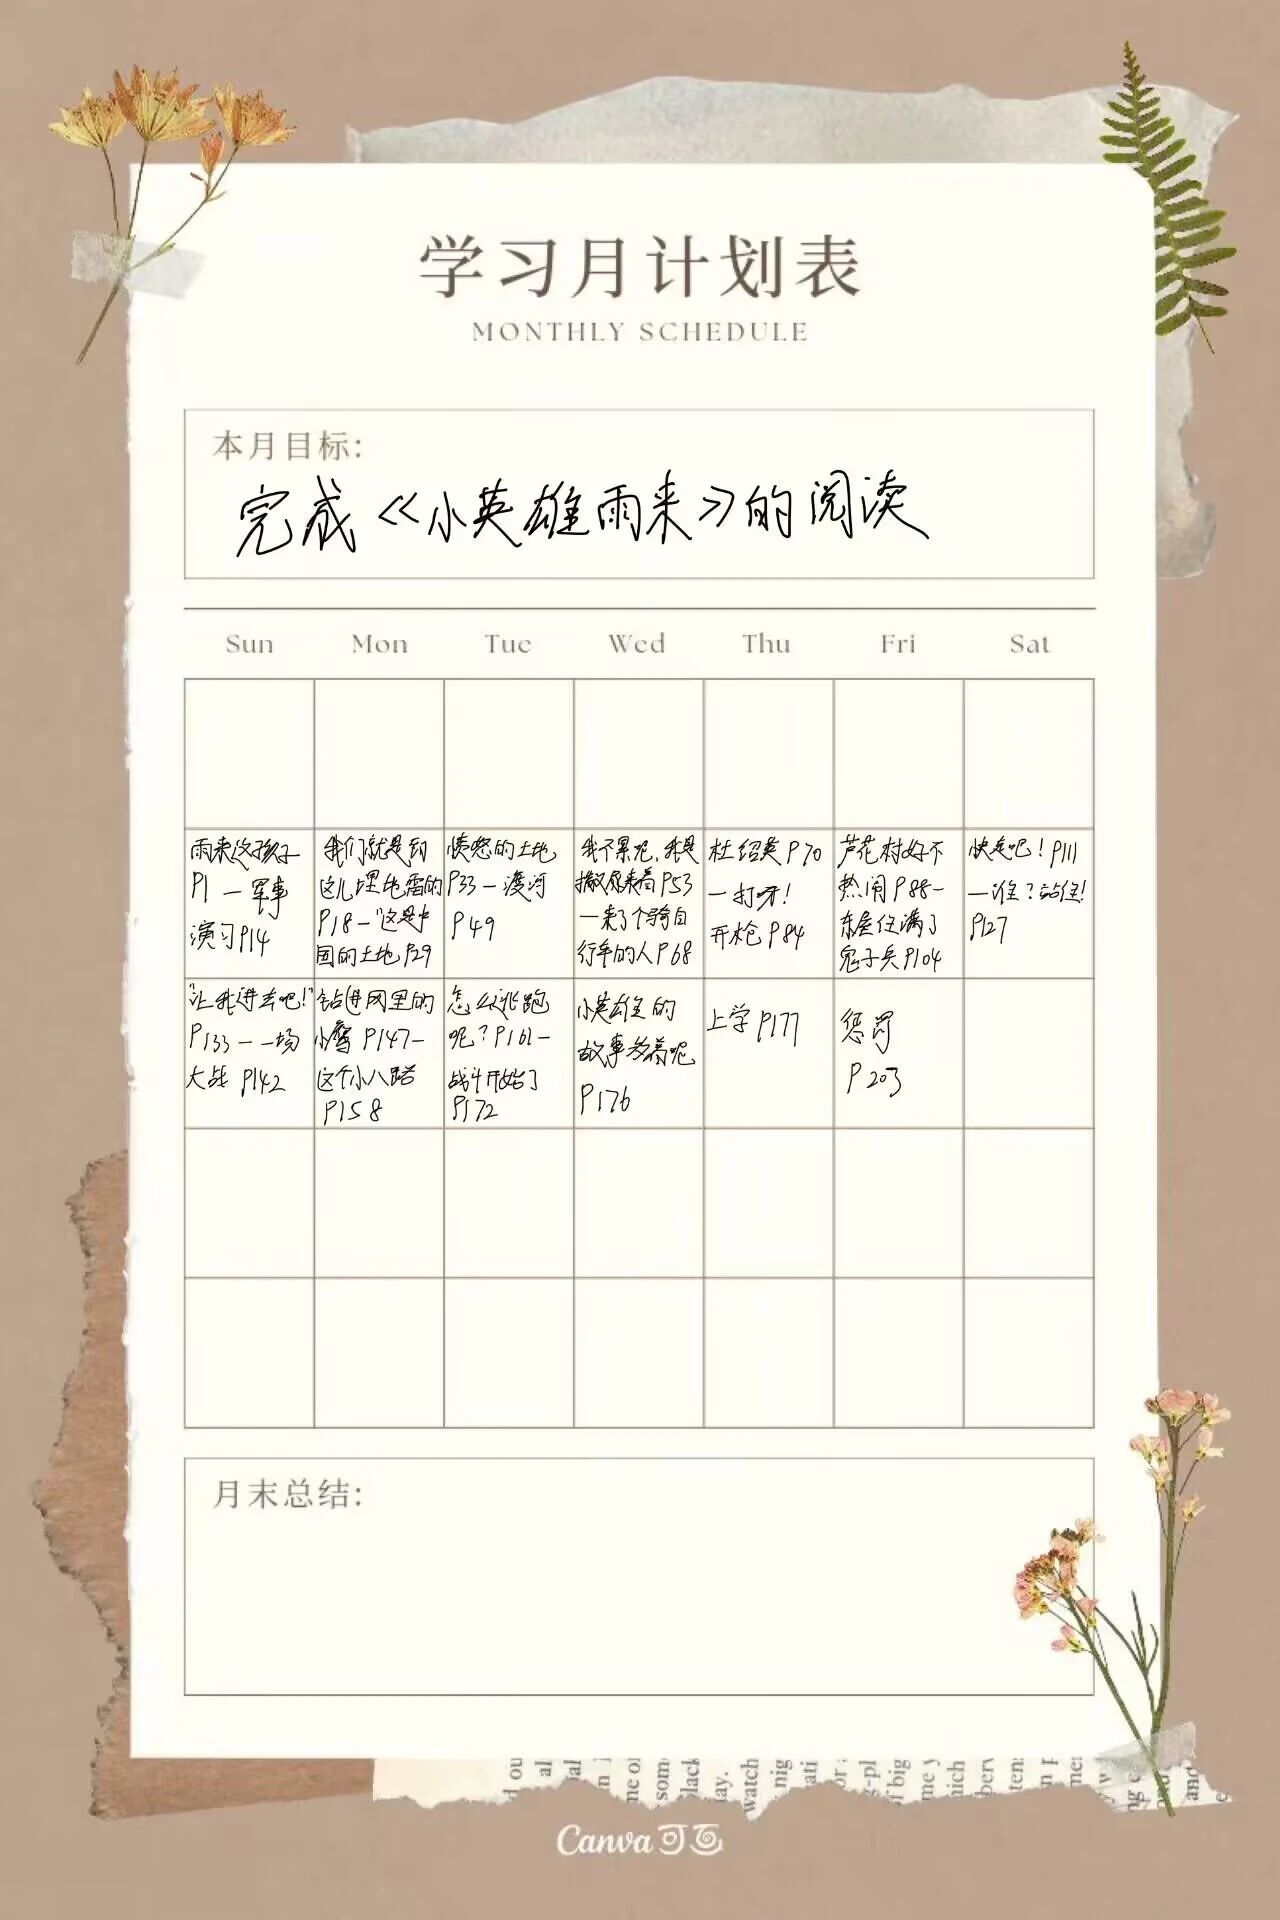 学习月计划表
MONTHLY SCHEDULE
本月目标:
完成《小英雄雨来》的阅读
Sun Mon Tue Wed Thu Fri Sat
雨来这孩子
P1 — 军事
演习P14
我们就是到
这儿埋地雷的
P18—"这是中
国的土地P29
愤怒的土地
P33—渡河
P49
我不累呢,我是
撒尿来着P53
—来了个骑自
行车的人P68
杜绍英P70
—打呀!
开枪P84
芦花村好不
热闹P88—
东屋住满了
鬼子兵P104
快走吧!P111
—谁?站住!
P127
"让我进去吧!"
P133—一场
大战 P142
钻进网里的
小鸟 P147—
这个小八路
P158
怎么逃跑
呢?P161—
战斗开始了
P172
小英雄的
故事多着呢
P176
上学P177
惩罚
P203
月末总结:
Canva可画